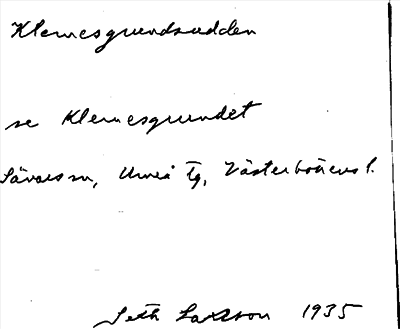 Klemesgrundsudden
se Klemesgrundet
Sävars sn, Umeå tg, Västerbottens l.
Seth Larsson 1935